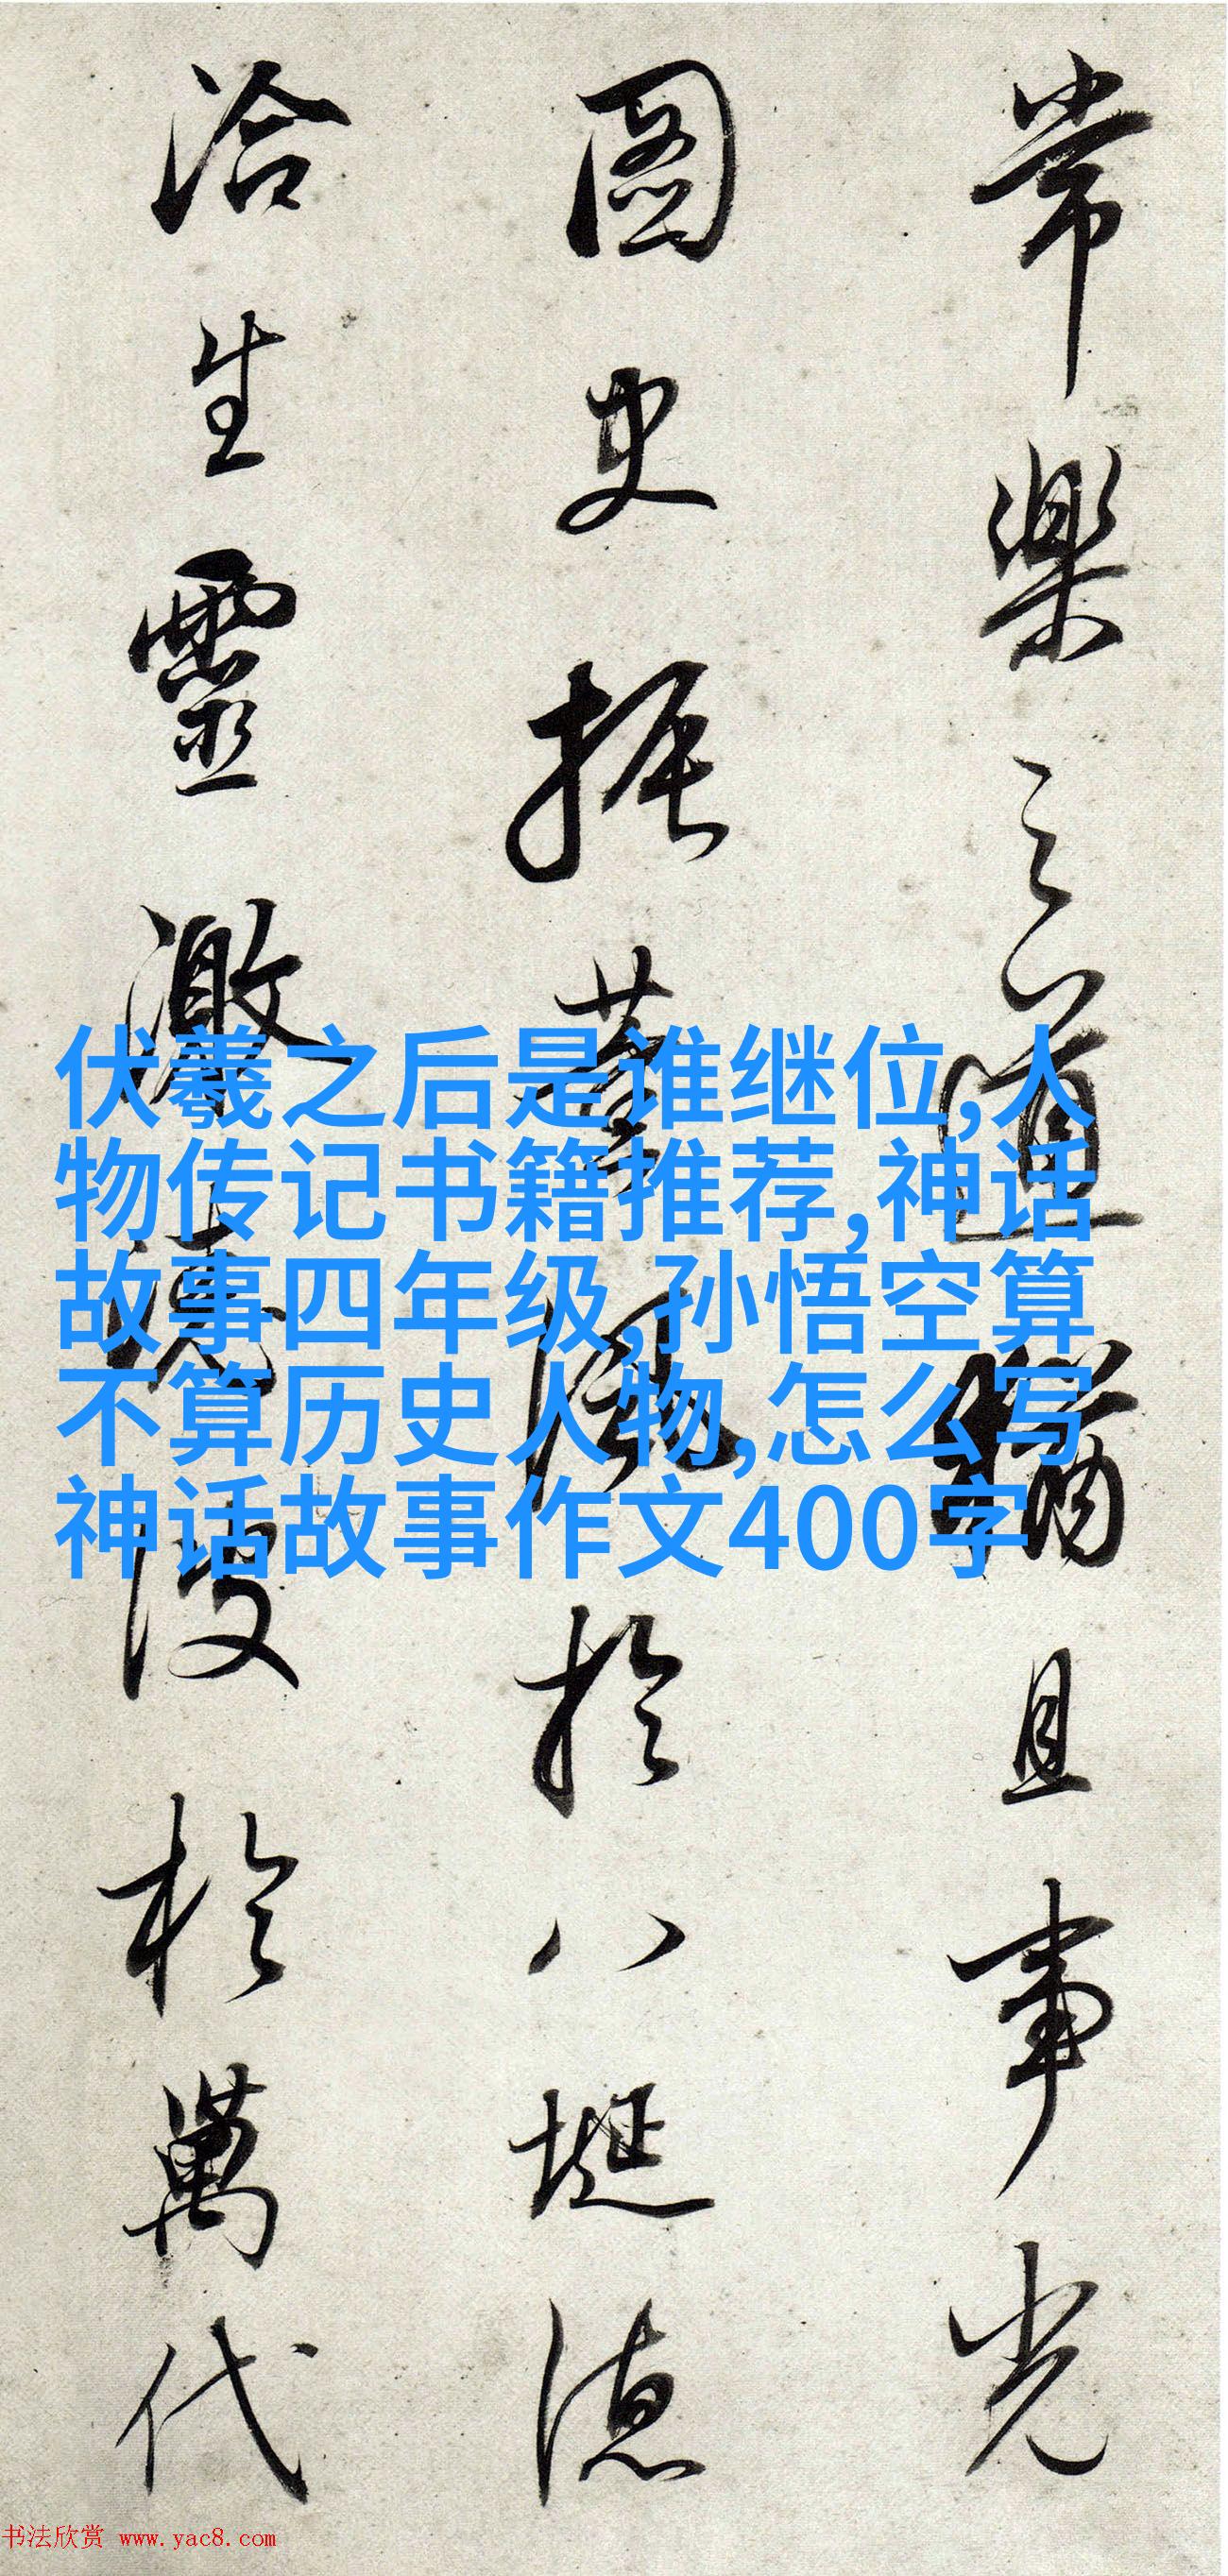 常樂之道猶且事光
圖史振薰風於八埏德
洽生靈激波於萬代
伏羲之后是谁继位,人
物传记书籍推荐,神话
故事四年级,孙悟空算
不算历史人物,怎么写
神话故事作文400字
书法欣赏 www.yac8.com